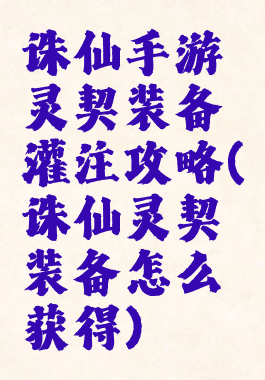 诛仙手游
灵契装备
灌注攻略(
诛仙灵契
装备怎么
获得)